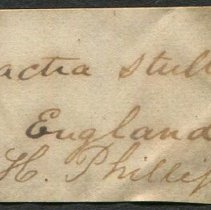 actra stul
England
H. Phillip